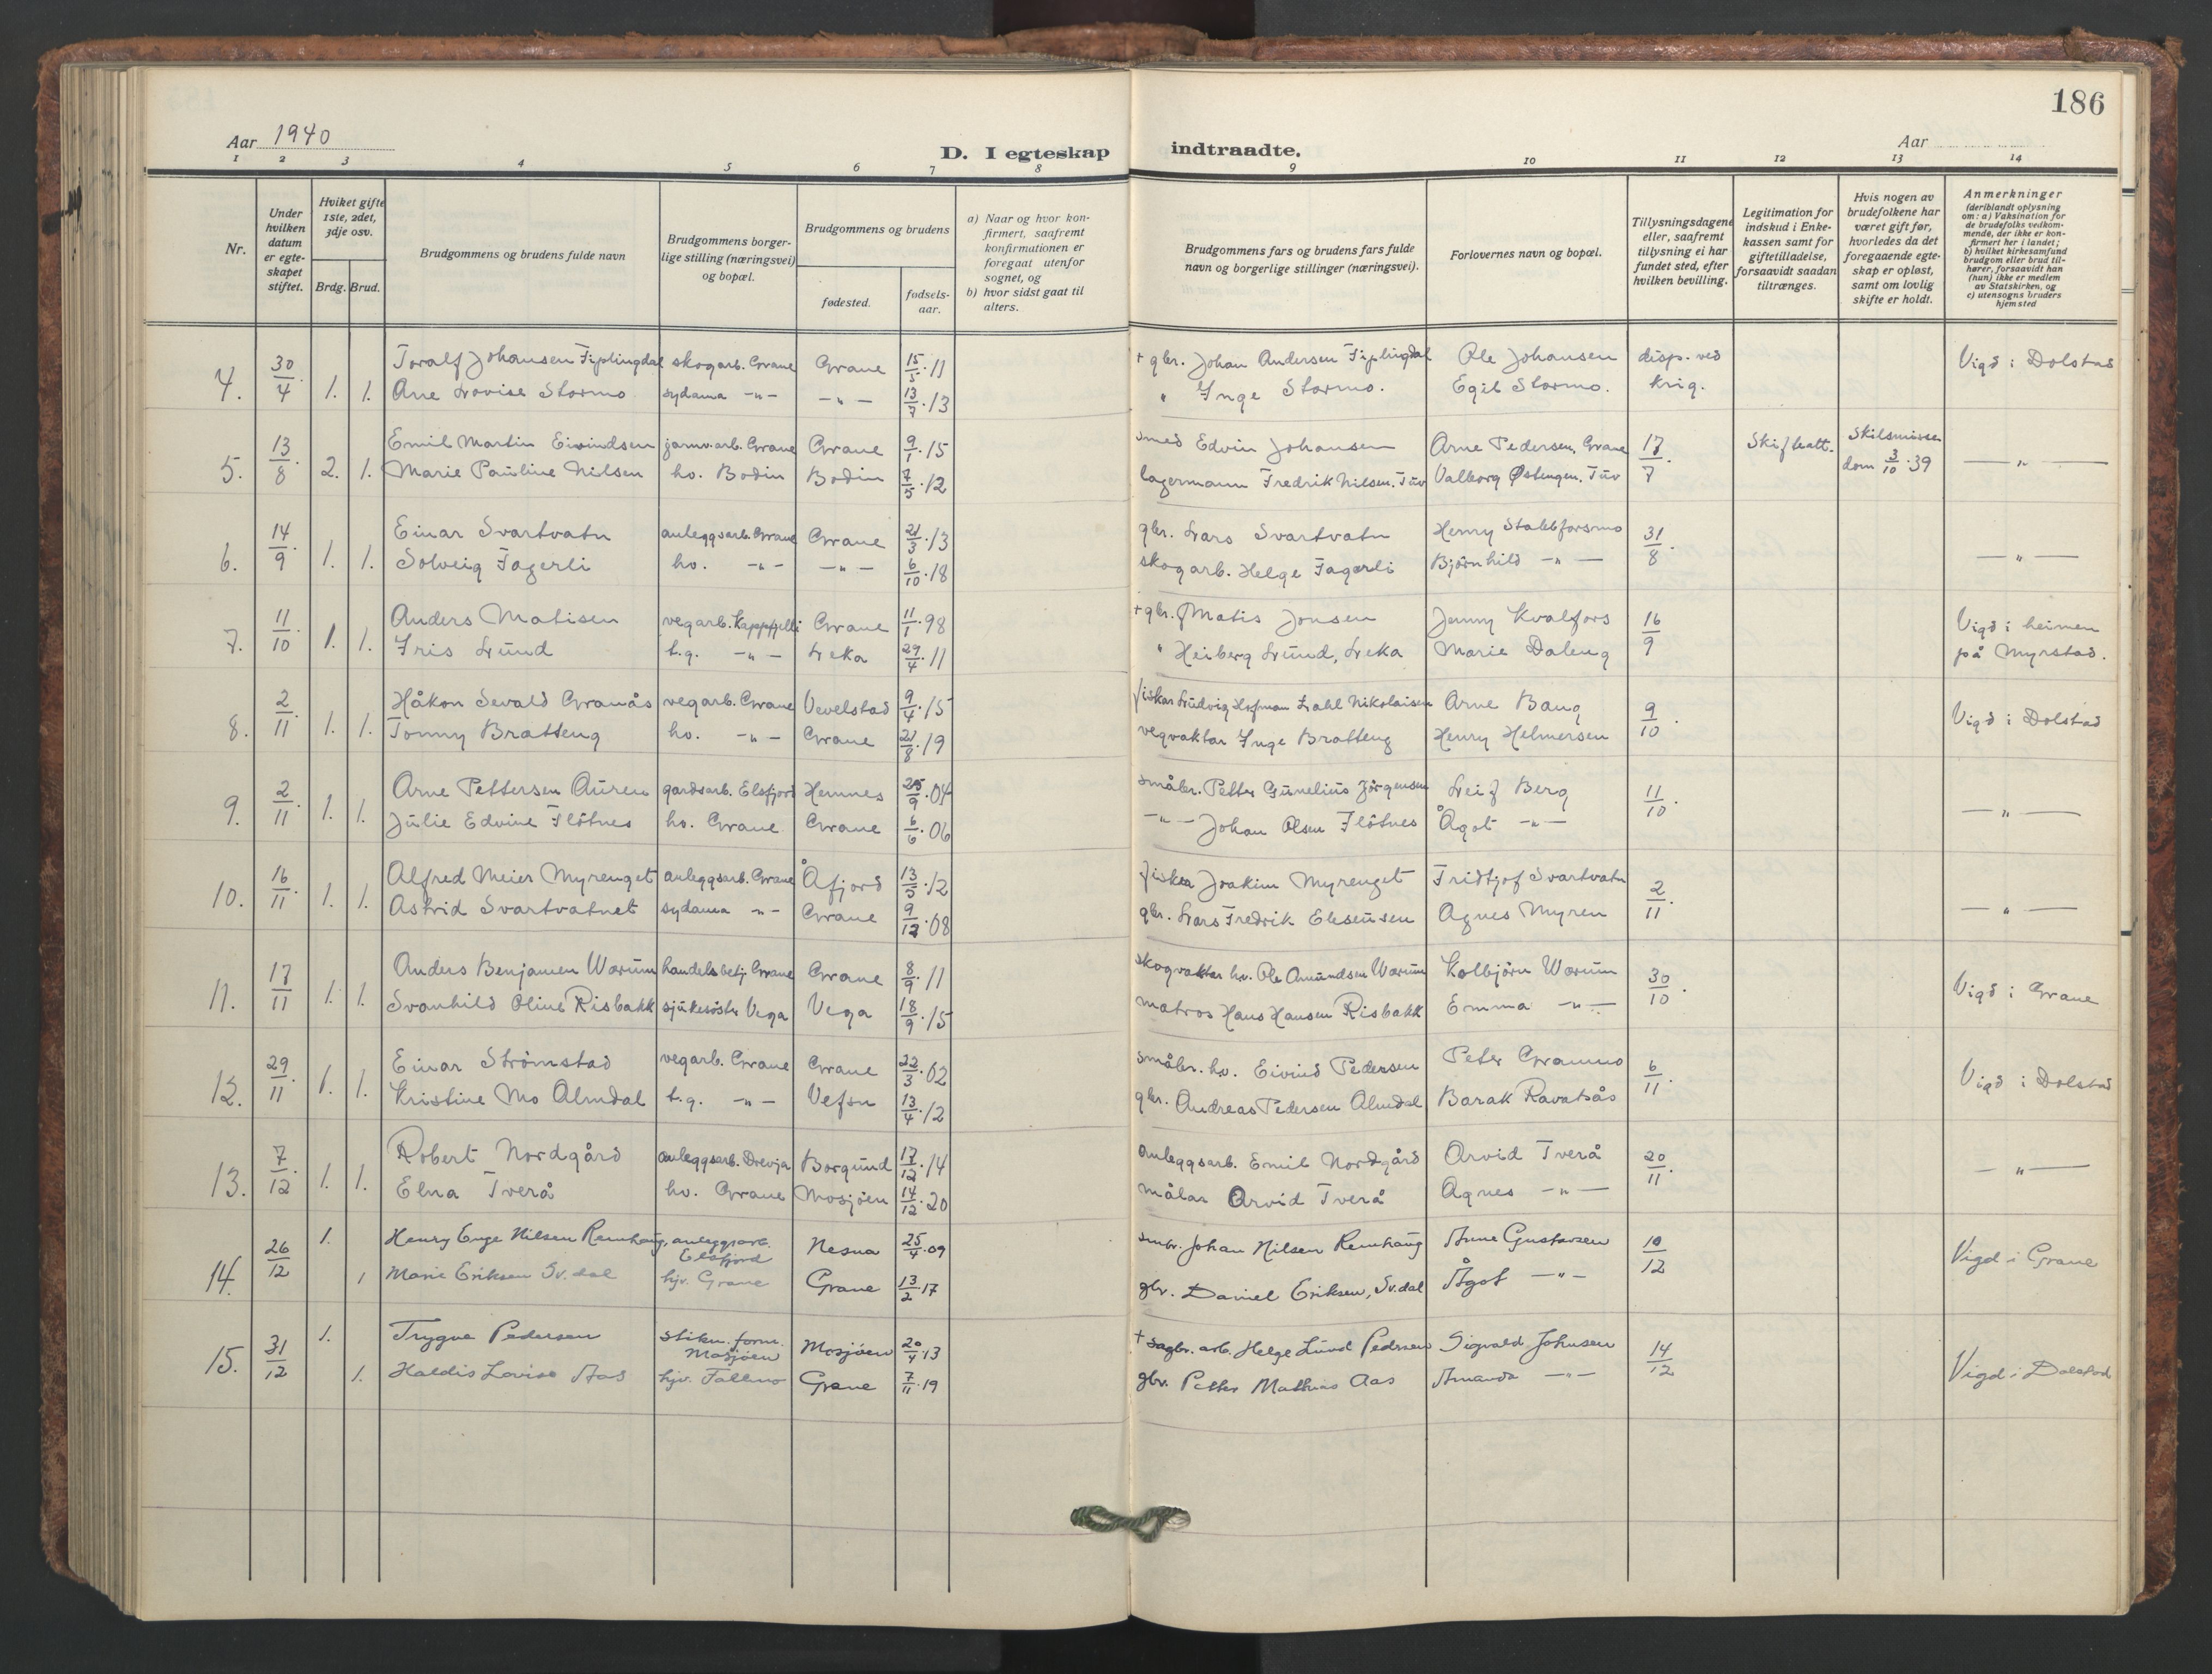 186
Aar 1940
D. I egteskap indtraadte.
Aar
1 2 3 4 5 6 7 8 9 10 11 12 13 14
Nr.
Under hvilken datum er egteskapet stiftet.
Hviket gifte 1ste, 2det, 3dje osv.
Brdg. Brud.
Brudgommens og brudens fulde navn
Brudgommens borgerlige stilling (næringsvei) og bopæl.
Brudgommens og brudens
fødested.
fødselsaar.
a) Naar og hvor konfirmert, saafremt konfirmationen er foregaat utenfor sognet, og
b) hvor sidst gaat til alters.
Brudgommens fars og brudens fars fulde navn og borgerlige stillinger (næringsvei).
Forlovernes navn og bopæl.
Tillysningsdagene eller, saafremt tillysning ei har fundet sted, efter hvilken bevilling.
Legitimation for indskud i Enkekassen samt for giftetilladelse, forsaavidt saadan tiltrænges.
Hvis nogen av brudefolkene har været gift før, hvorledes da det foregaaende egteskap er opløst, samt om lovlig skifte er holdt.
Anmerkninger (deriblandt oplysning om: a) Vaksination for de brudefolks vedkommende, der ikke er konfirmert her i landet; b) hvilket kirkesamfund brudgom eller brud tilhører, forsaavidt han (hun) ikke er medlem av Statskirken, og c) utensogns bruders hjemsted
4. 30/4 1. 1. Toralf Johansen Fiplingdal skogarb. Grane Grane 15/5.11 + gbr. Johan Andersen Fiplingdal Ole Johansen disp. ved Vigd i Dolstad
Ane Lovise Stormo sydama -"- -"- 13/7.13 " Inge Stormo. Egil Stormo. krig.
5. 13/8 2. 1. Emil Martin Eivindsen jarnv.arb. Grane Grane 9/1.15 smed Edvin Johansen Arne Pedersen, Grane 17/7. Skifteatt. Skilsmisse -"-
Marie Pauline Nilsen hv. Bodin Bodin 7/5.12 lagermann Fredrik Nilsen, Tuv Valborg Østengen, Tuv dom 3/10.39
6. 14/9 1. 1. Einar Svartvatn anleggsarb. Grane Grane 21/3.13 gbr. Lars Svartvatn Henry Stabbforsmo 31/8. -"-
Solveig Fagerli hv. -"- -"- 6/10.18 skogarb. Helge Fagerli Bjørnhild -"-
7. 11/10 1. 1. Anders Matisen vegarb. Kappfjelli Grane 11/1.98 + gbr. Matis Jonsen Jenny Kvalfors 16/9 Vigd i heimen
Iris Lund t.g. -"- Leka 29/4.11 " Heiberg Lund, Leka Marie Daleng på Myrstad.
8. 2/11 1. 1. Håkon Sevald Granås vegarb. Grane Vevelstad 9/4.15 fiskar Ludvig Hofman Dahl Nikolaisen Arne Baug 9/10. Vigd i Dolstad
Tonny Bratteng hv. -"- Grane 21/8.19 vegvaktar Inge Bratteng Henry Helmersen
9. 2/11 1. 1. Arne Pettersen Auren gardsarb. Elsfjord Hemnes 25/9.04 småbr. Petter Gunelius Jørgensen Leif Berg 11/10. -"-
Julie Edvine Fløtnes hv. Grane Grane 6/6.06 -"- Johan Olsen Fløtnes Ågot -"-
10. 16/11 1. 1. Alfred Meier Myrenget anleggsarb. Grane Åfjord 13/5.12 fiskar Joakim Myrenget Fridtjof Svartvatn 2/11. -"-
Astrid Svartvatnet sydama -"- Grane 9/12.08 gbr. Lars Fredrik Elesensen Agnes Myren
11. 17/11 1. 1. Anders Benjamin Wærum handelsbetj. Grane Grane 8/9.11 skogvaktar hv. Ole Amundsen Wærum Kolbjørn Wærum 30/10. Vigd i Grane
Svanhild Oline Risbakk sjukesøster Vega Vega 18/9.15 matros Hans Hansen Risbakk Emma -"-
12. 29/11 1. 1. Einar Strømstad vegarb. Grane Grane 22/3.02 småbr. hv. Eivind Pedersen Peter Granmo 6/11. Vigd i Dolstad
Kristine Mo Almdal t.g. -"- Vefsn 13/4.12 gbr. Andreas Pedersen Almdal Barak Ravatsås
13. 7/12 1. 1. Robert Nordgård anleggsarb. Drevja Borgund 17/12.14 anleggsarb. Emil Nordgård Arvid Tverå 20/11. -"-
Elna Tverå hv. Grane Mosjøen 14/12.20 målar Arvid Tverå Agnes -"-
14. 26/12 1. Henry Enge Nilsen Remhaug, anleggsarb. Elsfjord Nesna 25/4.09 smbr. Johan Nilsen Remhaug Arne Gustavsen 10/12 Vigd i Grane
1 Marie Eriksen Sv.dal hjv. Grane Grane 13/2.17 gbr. Daniel Eriksen, Sv.dal Ågot -"-
15. 31/12 1. Trygve Pedersen stikn.form. Mosjøen Mosjøen 20/4.13 + sagbr. arb. Helge Lund Pedersen Sigvald Johnsen 14/12 Vigd i Dolstad
1. Haldis Lovise Aas hjv. Fallmo Grane 7/11.19 gbr. Petter Mathias Aas Amanda -"-